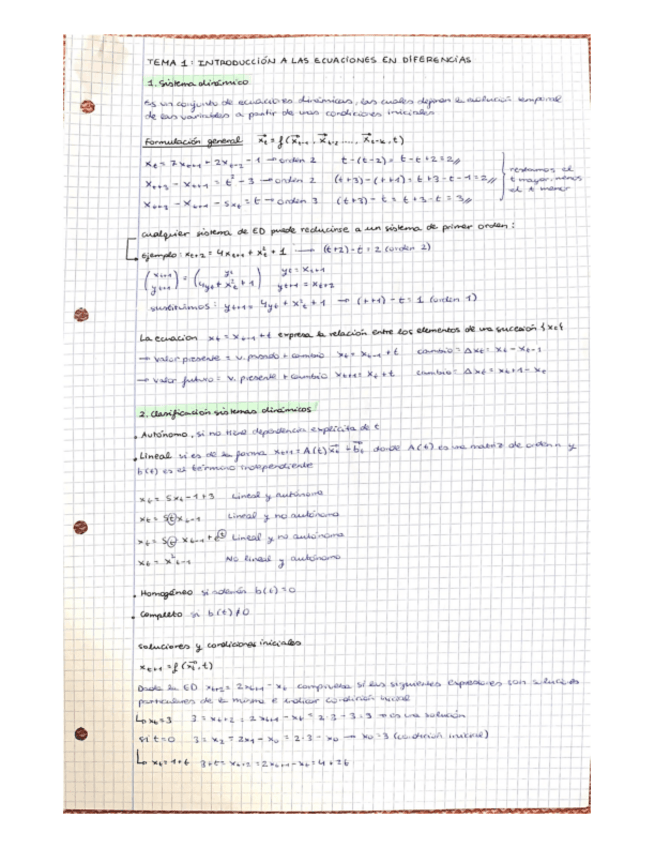 TEMA 1: INTRODUCCIÓN A LAS ECUACIONES EN DIFERENCIAS
1. Sistema dinámico
Es un conjunto de ecuaciones dinámicas, las cuales definen la evolución temporal
de las variables a partir de unas condiciones iniciales
Formulación general
xₜ₊₃ - xₜ₊₁ = t² - 3 → orden 2 (t+3)-(t+1) = t+3-t-1 = 2
xₜ₊₃ - xₜ₊₁ - 5xₜ = t → orden 3 (t+3)-t = t+3-t = 3
restamos el
t mayor menos
el t menor
Cualquier sistema de ED puede reducirse a un sistema de primer orden:
ejemplo: xₜ₊₂ = 4xₜ₊₁ + xₜ² + 1 → (t+2)-t = 2 (orden 2)
yₜ = xₜ₊₁
yₜ₊₁ = xₜ₊₂
sustituimos: yₜ₊₁ = 4yₜ + xₜ² + 1 → (t+1)-t = 1 (orden 1)
La ecuacion xₜ = xₜ₋₁ + t expresa la relación entre los elementos de una sucesión {xₜ}
→ valor presente = v. pasado + cambio xₜ = xₜ₋₁ + t cambio = Δxₜ = xₜ - xₜ₋₁
→ valor futuro = v. presente + cambio xₜ₊₁ = xₜ + t cambio = Δxₜ = xₜ₊₁ - xₜ
2. Clasificación sistemas dinámicos
· Autónomo, si no tiene dependencia explícita de t
· Lineal si es de la forma xₜ₊₁ = A(t)xₜ + bₜ donde A(t) es una matriz de orden n y
b(t) es el término independiente
xₜ = 5xₜ₋₁ + 3 Lineal y autónomo
xₜ = 5t xₜ₋₁ Lineal y no autónomo
Lineal y no autónomo
xₜ = x²ₜ₋₁ No lineal y autónomo
· Homogéneo si además b(t) = 0
· Completo si b(t) ≠ 0
soluciones y condiciones iniciales
xₜ₊₁ = f(xₜ, t)
Dada la ED xₜ₊₂ = 2xₜ₊₁ - xₜ comprueba si las siguientes expresiones son soluciones
particulares de la misma e indicar condición inicial
↳ xₜ = 3 3 = xₜ₊₂ = 2xₜ₊₁ - xₜ = 2·3 - 3 = 3 → es una solución
si t=0 3 = x₂ = 2x₁ - x₀ = 2·3 - x₀ → x₀ = 3 (condición inicial)
↳ xₜ = 1+t 3+t = xₜ₊₂ = 2xₜ₊₁ - xₜ = 4 + 2t